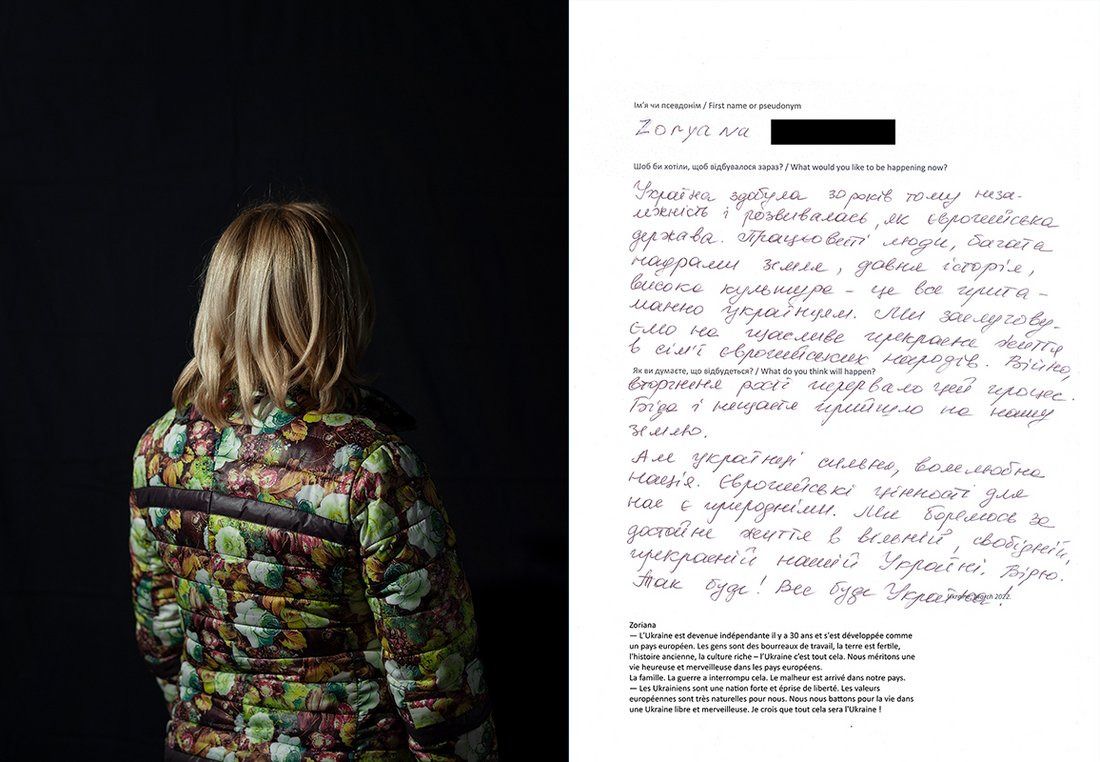 Ім'я чи псевдонім / First name or pseudonym
Zoryana
Шоб би хотіли, щоб відбувалося зараз? / What would you like to be happening now?
Україна здобула 30 років тому неза-
лежність і розвивалась, як європейська
держава. Працьовиті люди, багата
надрами земля, давня історія,
висока культура – це все прита-
манно українцям. Ми заслугову-
ємо на щасливе прекрасне життя
в сім'ї європейських народів. Війна,
Як ви думаєте, що відбудеться? / What do you think will happen?
вторгнення росії перервало цей процес.
Біда і нещастя прийшло на нашу
землю.
Але українці сильна, волелюбна
нація. Європейські цінності для
нас є природніми. Ми боремось за
достойне життя в вільній, свобідній,
прекрасній нашій Україні. Вірю.
Так буде! Все буде Україна!
Ukraine, March 2022.
Zoriana
— L'Ukraine est devenue indépendante il y a 30 ans et s'est développée comme
un pays européen. Les gens sont des bourreaux de travail, la terre est fertile,
l'histoire ancienne, la culture riche – l'Ukraine c'est tout cela. Nous méritons une
vie heureuse et merveilleuse dans les pays européens.
La famille. La guerre a interrompu cela. Le malheur est arrivé dans notre pays.
— Les Ukrainiens sont une nation forte et éprise de liberté. Les valeurs
européennes sont très naturelles pour nous. Nous nous battons pour la vie dans
une Ukraine libre et merveilleuse. Je crois que tout cela sera l'Ukraine !